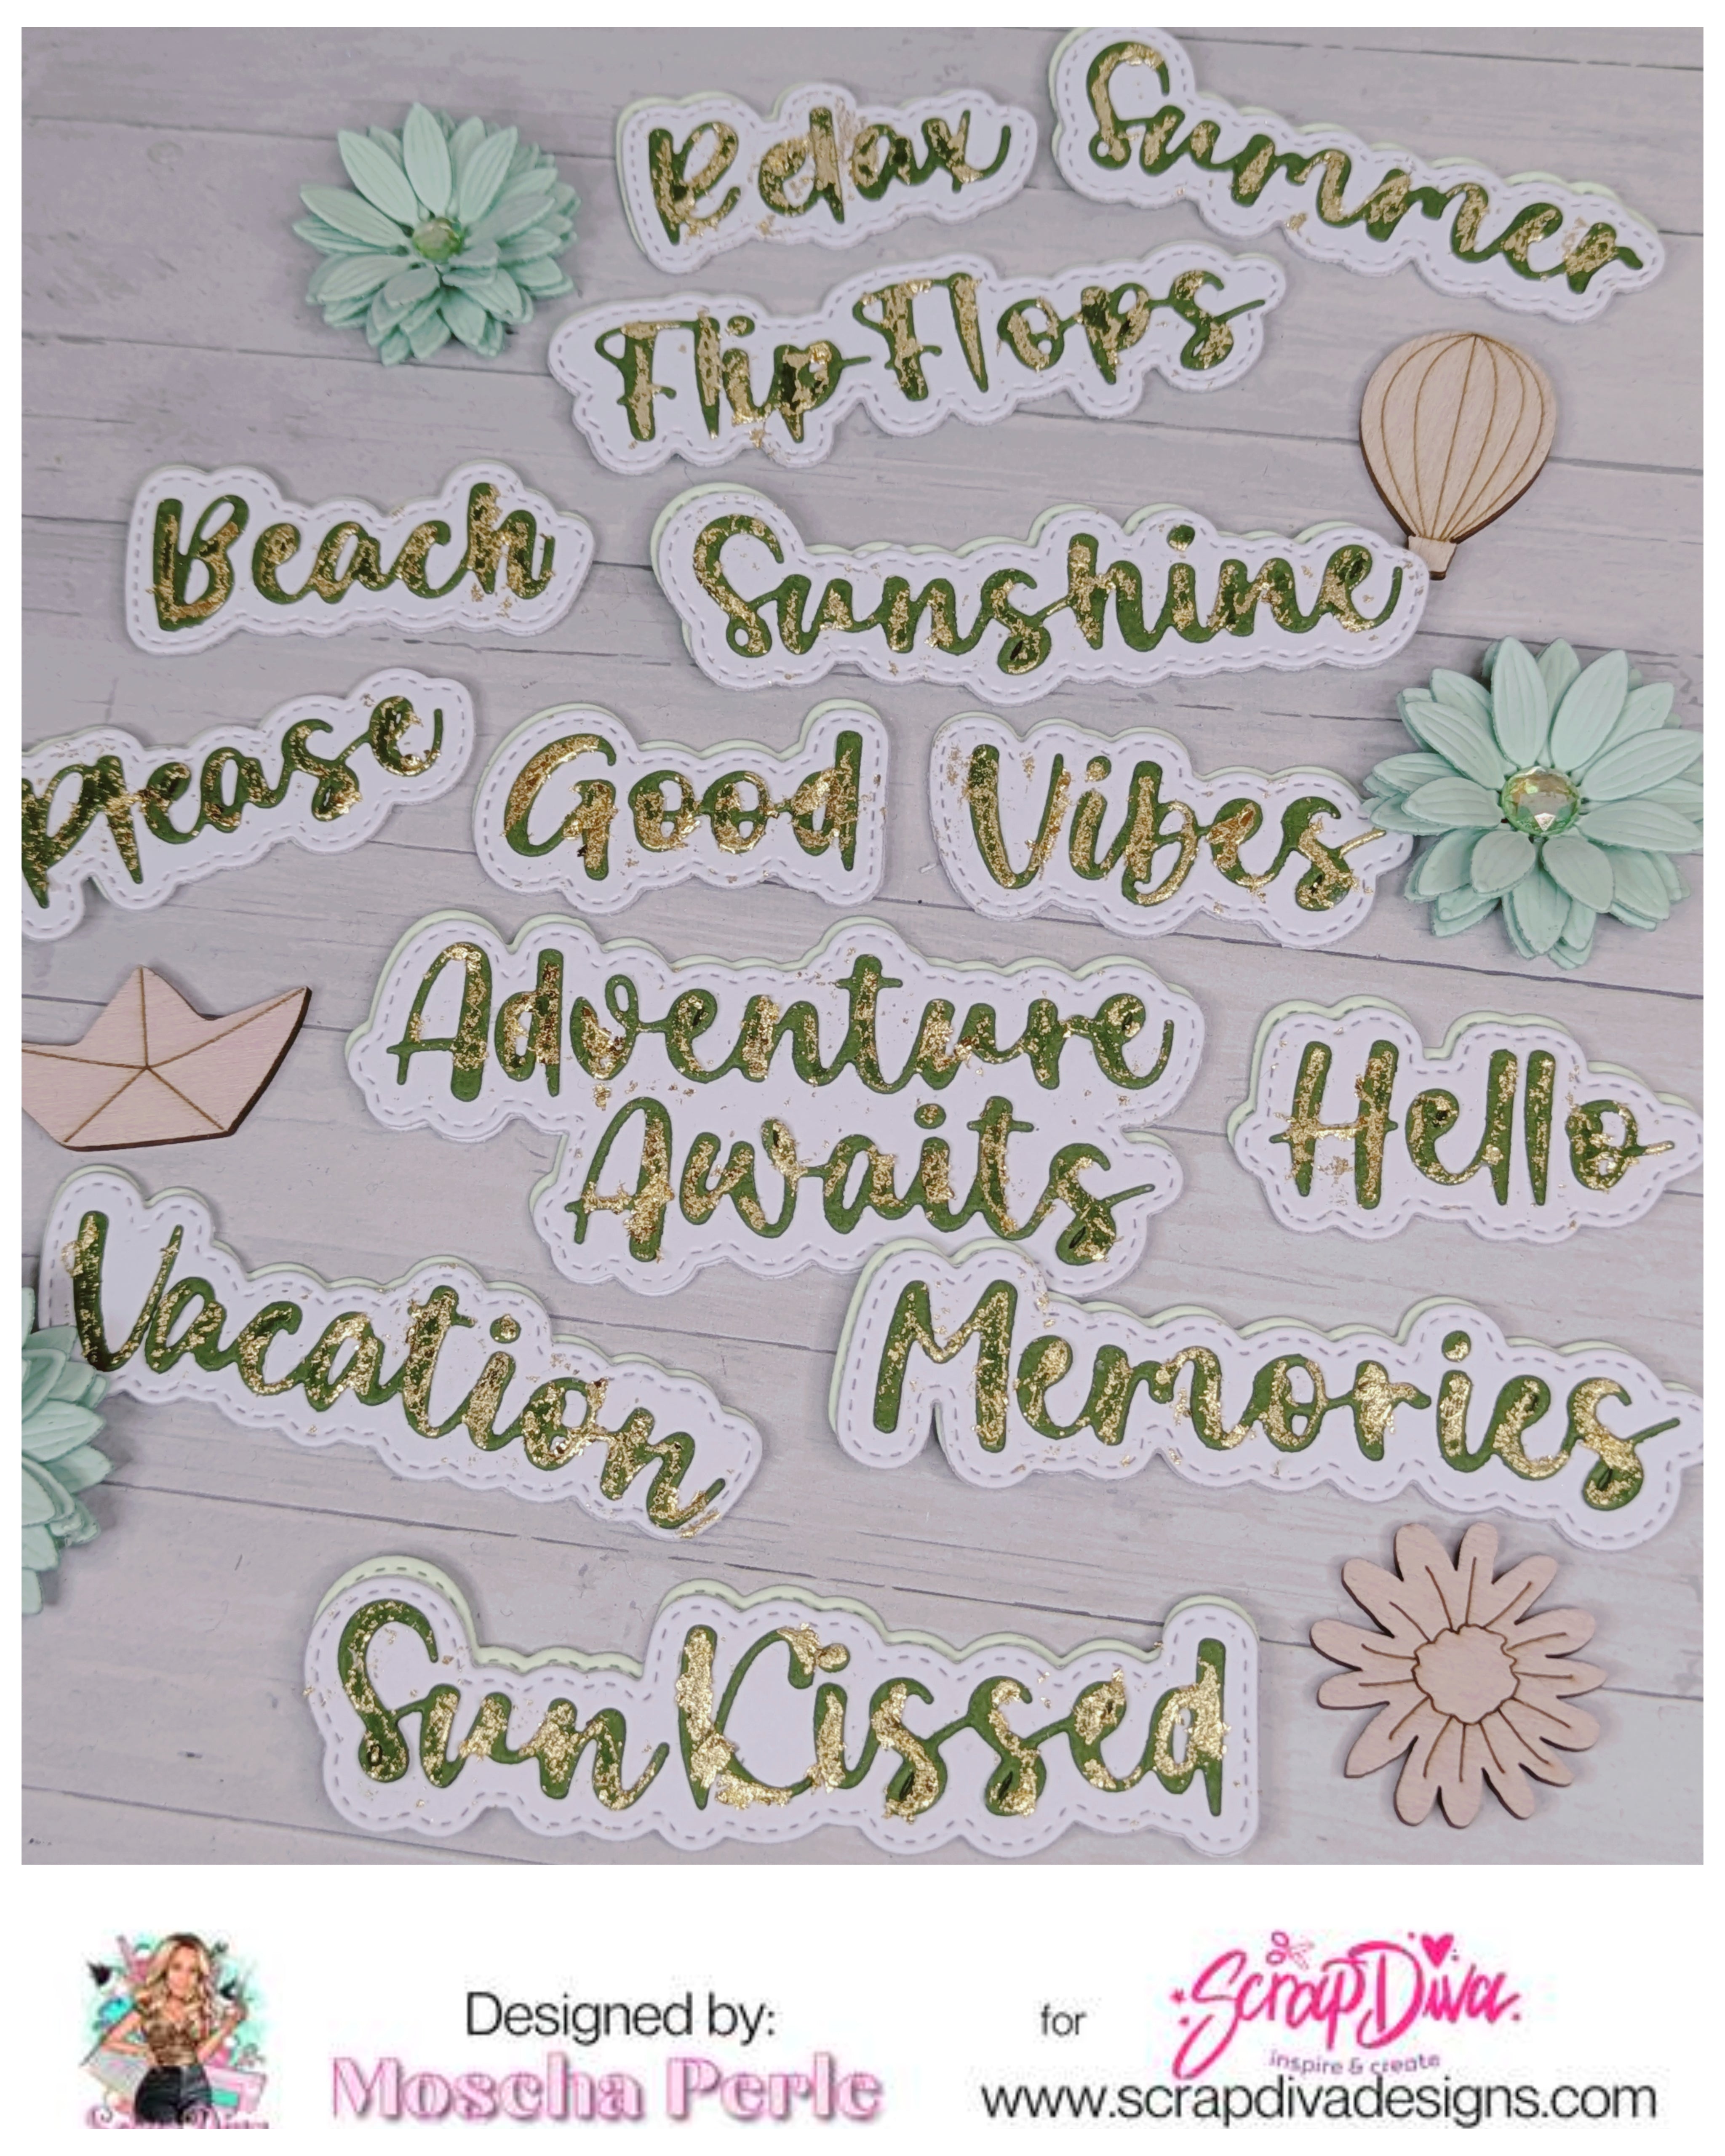 Relax
Summer
Flip Flops
Beach
Sunshine
Please
Good
Vibes
Adventure
Awaits
Hello
Vacation
Memories
Sun Kissed
Designed by:
Moscha Perle
for
Scrap Diva
inspire & create
www.scrapdivadesigns.com
Scrap Diva